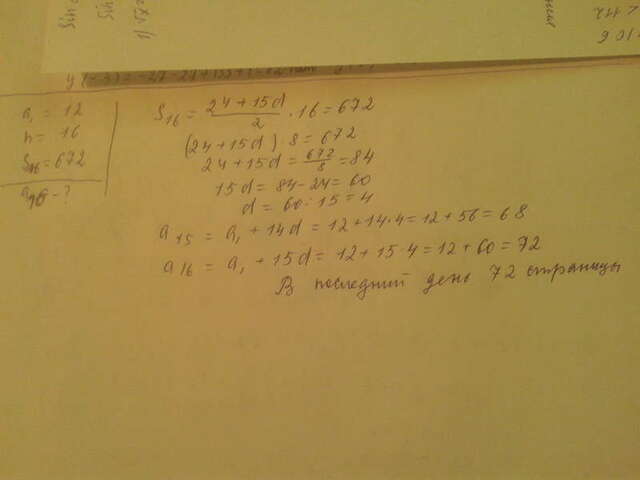 Sin
Sin
a₁ = 12
n = 16
S₁₆ = 672
a₁₆ - ?
S₁₆ = (24 + 15d)/2 · 16 = 672
(24 + 15d) · 8 = 672
24 + 15d = 672/8 = 84
15d = 84 - 24 = 60
d = 60 : 15 = 4
a₁₅ = a₁ + 14d = 12 + 14 · 4 = 12 + 56 = 68
a₁₆ = a₁ + 15d = 12 + 15 · 4 = 12 + 60 = 72
В последний день 72 страницы